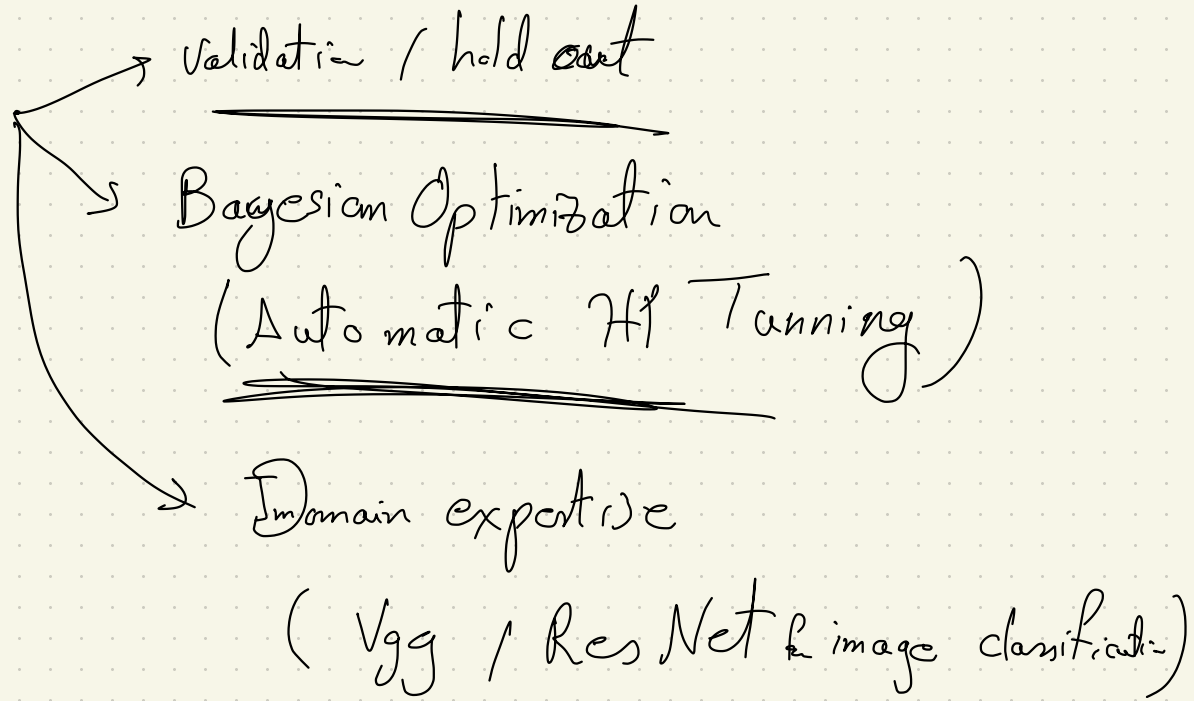 Validation / hold out
Bayesian Optimization
(Automatic HP Tunning)
Domain expertise
(Vgg / ResNet for image classification)